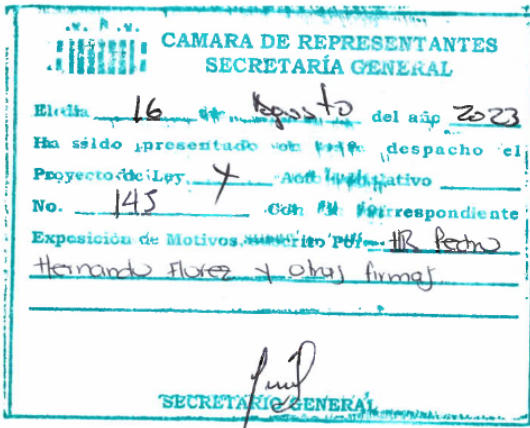 CAMARA DE REPRESENTANTES
SECRETARÍA GENERAL
El día 16 de Agosto del año 2023
Ha sido presentado en este despacho el
Proyecto de Ley X Acto Legislativo
No. 145 Con su correspondiente
Exposición de Motivos, suscrito Por HR Pedro
Hernando Florez y otras firmas
SECRETARIO GENERAL